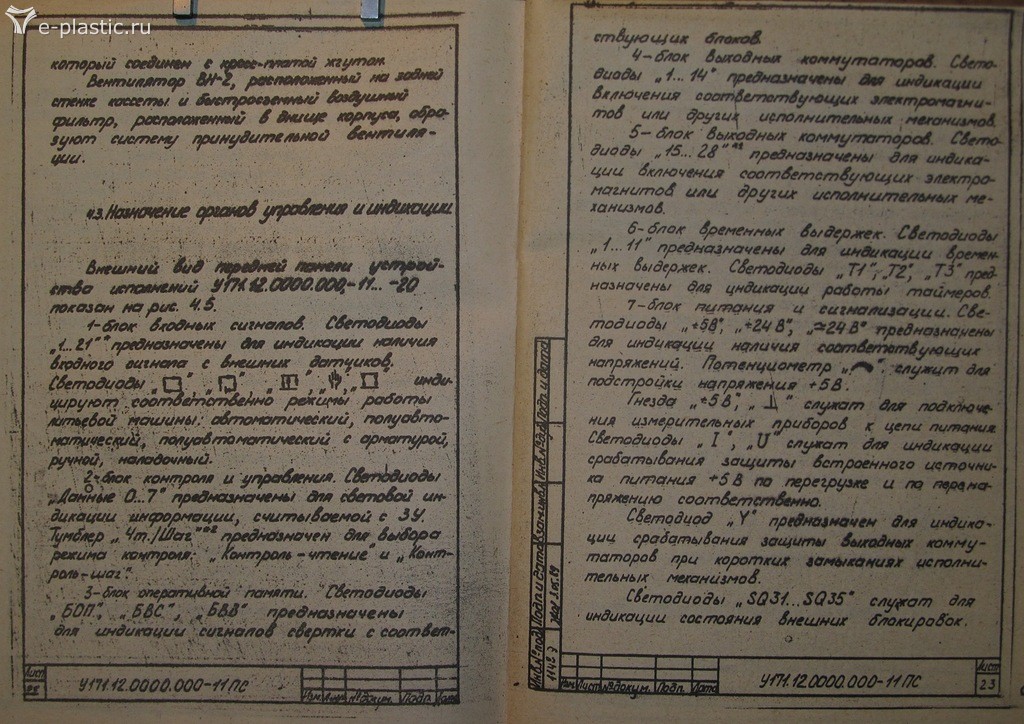 e-plastic.ru
который соединен с кросс-платой жгутом.
Вентилятор ВН-2, расположенный на задней
стенке кассеты и быстросъемный воздушный
фильтр, расположенный в днище корпуса, обра-
зуют систему принудительной вентиля-
ции.
4.3. Назначение органов управления и индикации
Внешний вид передней панели устрой-
ства исполнений У171.12.0000.000,-11... -20
показан на рис. 4.5.
1-блок входных сигналов. Светодиоды
„1...21" предназначены для индикации наличия
входного сигнала с внешних датчиков.
Светодиоды „ ", „ ", „ ", „ ", „ " инди-
цируют соответственно режимы работы
литьевой машины: автоматический, полуавто-
матический, полуавтоматический с арматурой,
ручной, наладочный.
2-блок контроля и управления. Светодиоды
„Данные 0...7" предназначены для световой ин-
дикации информации, считываемой с ЗУ.
Тумблер „Чт./Шаг" предназначен для выбора
режима контроля: „Контроль-чтение" и „Конт-
роль-шаг".
3-блок оперативной памяти. Светодиоды
„БОП", „БВС", „БВВ" предназначены
для индикации сигналов свертки с соответ-
Лист
У171.12.0000.000-11 ПС
Изм. Лист № докум. Подп. Дата
ствующих блоков.
4-блок выходных коммутаторов. Свето-
диоды „1...14" предназначены для индикации
включения соответствующих электромагни-
тов или других исполнительных механизмов.
5-блок выходных коммутаторов. Свето-
диоды „15...28" предназначены для индика-
ции включения соответствующих электро-
магнитов или других исполнительных ме-
ханизмов.
6-блок временных выдержек. Светодиоды
„1...11" предназначены для индикации времен-
ных выдержек. Светодиоды „Т1", „Т2", „Т3" пред-
назначены для индикации работы таймеров.
7-блок питания и сигнализации. Све-
тодиоды „+5В", „+24В", „≃24В" предназначены
для индикации наличия соответствующих
напряжений. Потенциометр „ " служит для
подстройки напряжения +5В.
Гнезда „+5В", „⊥" служат для подключе-
ния измерительных приборов к цепи питания.
Светодиоды „I", „U" служат для индикации
срабатывания защиты встроенного источни-
ка питания +5В по перегрузке и по перена-
пряжению соответственно.
Светодиод „Y" предназначен для индика-
ции срабатывания защиты выходных комму-
таторов при коротких замыканиях исполни-
тельных механизмов.
Светодиоды „SQ31...SQ35" служат для
индикации состояния внешних блокировок.
Изм. Лист № докум. Подп. Дата
У171.12.0000.000-11 ПС
Лист
23
Инв.№ подл. Подп. и дата Взам.инв.№ Инв.№ дубл. Подп. и дата